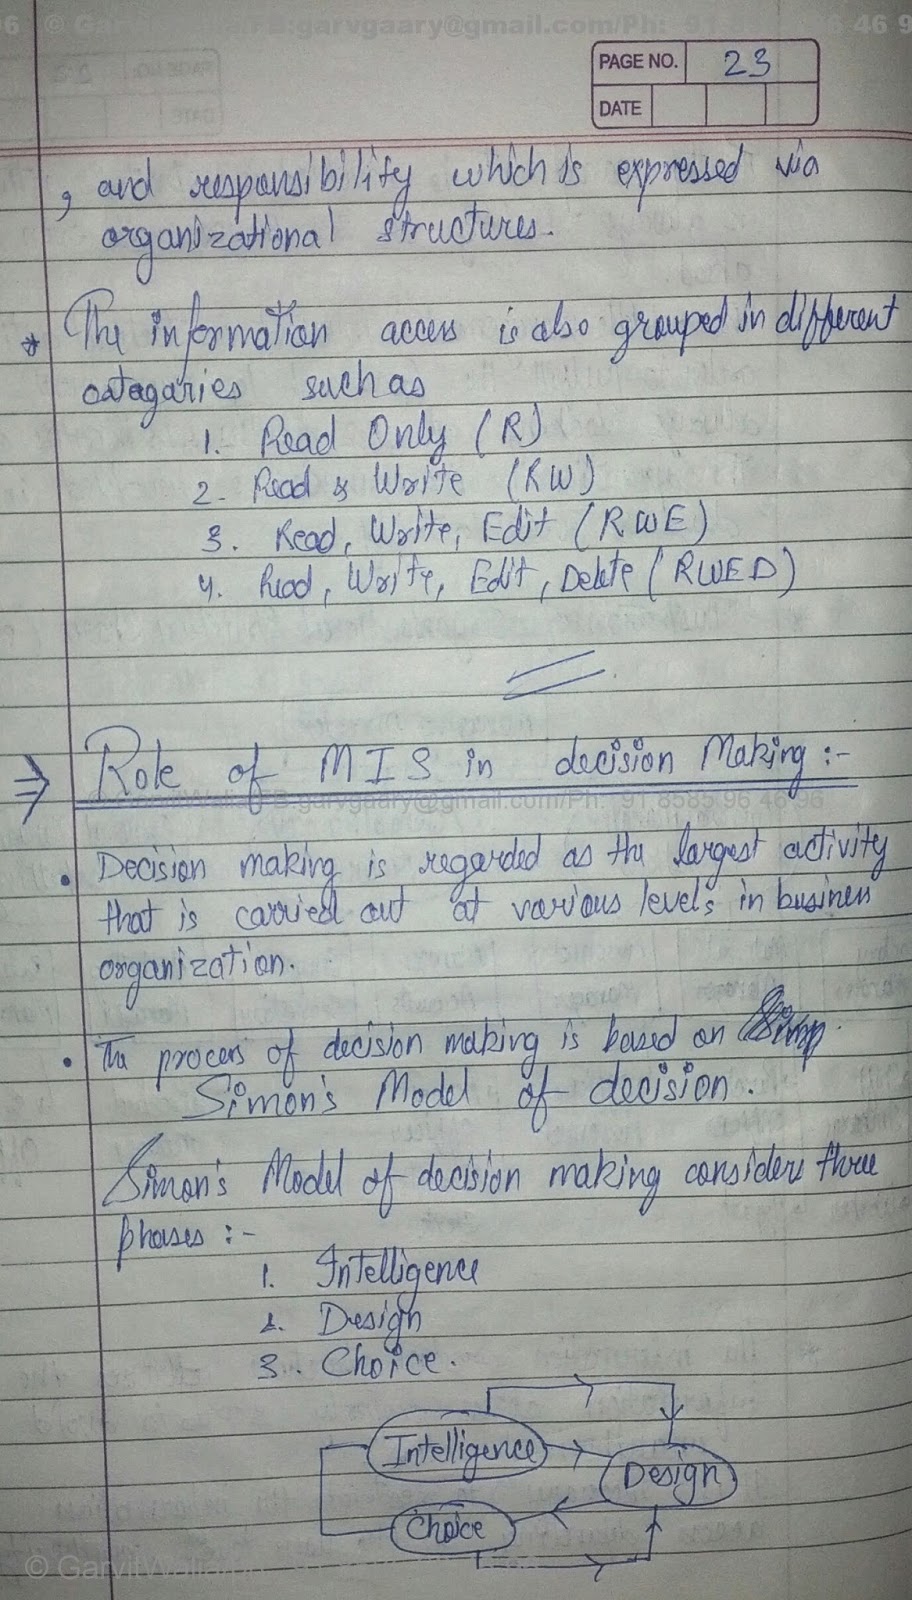 PAGE NO. 23
DATE
, and responsibility which is expressed via
organizational structures.
* The information access is also grouped in different
catagaries such as
1. Read Only (R)
2. Read & Write (RW)
3. Read, Write, Edit (RWE)
4. Read, Write, Edit, Delete (RWED)
⇒ Role of MIS in decision Making :-
© GarvitWalia FB:garvgaary@gmail.com/Ph: 91 8585 96 46 96
• Decision making is regarded as the largest activity
that is carried out at various levels in business
organization.
• The process of decision making is based on
Simon's Model of decision.
Simon's Model of decision making considers three
phases :-
1. Intelligence
2. Design
3. Choice.
Intelligence
Design
Choice